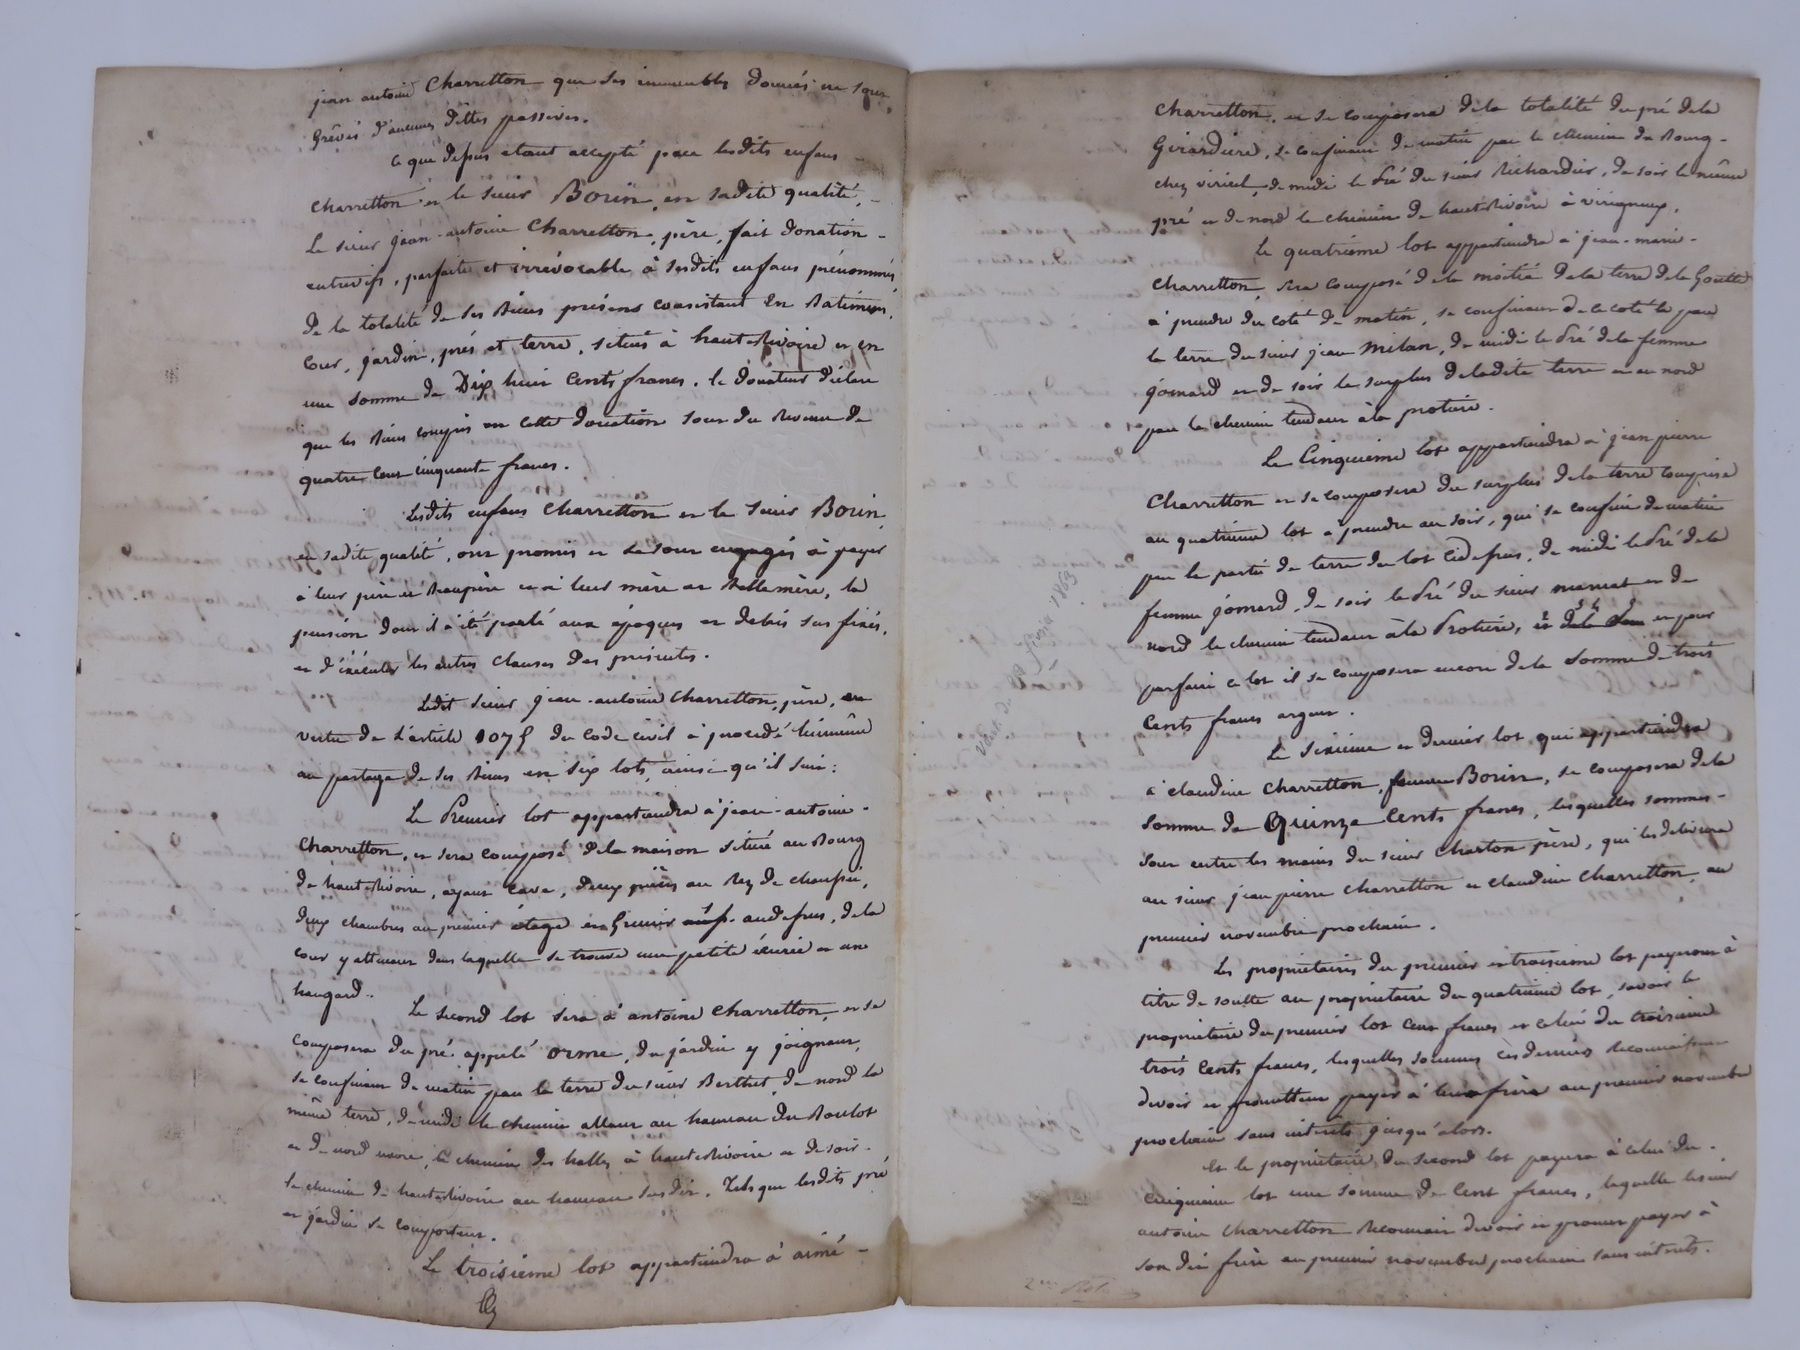 jean antoine Charretton que ses immeubles donnés ne sont
Grêvés d'aucunes dêttes passives.
Ce que dessus etant accepté par lesdits enfans
Charretton et le sieur Borin, en sadite qualité,
Le sieur jean-antoine Charretton, père, fait donation
entrevifs, parfaite et irrévocable à sesdits enfans prénommés
de la totalité de ses Biens présens consistant En Batimens,
Cour, jardin, prés et terre, situés à haute-Rivoire et en
une somme de Dix huit Cents francs. le donateur déclare
que les Biens compris en cette donation sont du Revenu de
quatre Cent cinquante francs.
Lesdits enfans Charretton et le sieur Borin,
en sadite qualité, ont promis et se sont engagés à payer
à leur père et Beaupère et à leur mère et Bellemère, la
pension dont il a été parlé aux époques et délais sus fixés,
et d'éxécuter les autres clauses des présentes.
Ledit sieur jean-antoine Charretton, père, en
vertu de L'article 1075 du Code civil à procédé luimême
au partage de ses Biens en six lots, ainsi qu'il suit:
Le Premier lot appartiendra à jean-antoine
Charretton, et sera composé de la maison située au Bourg
de haute-Rivoire, ayant Cave, deux pièces au Rez de chaussée,
deux chambres au premier étage et Grenier audessus, de la
cour y attenant dans laquelle se trouve une petite écurie et un
hangard.
Le second lot sera à antoine Charretton, et se
Composera du pré appelé orme, du jardin y joignant,
se confinant de matin par la terre du sieur Berthet, de nord la
même terre, de midi le chemin allant au hameau du Boulot
et de nord encore, le chemin des halles à haute-Rivoire et de soir
le chemin de haute-Rivoire au hameau susdit. Tels que lesdits pré
et jardin se comportent.
Le troisième lot appartiendra à aimé
Charretton, et se composera de la totalité du pré de la
Girardière, se confinant de matin par le chemin du Bourg
chez viricel, de midi le Pré du sieur Richardier, de soir le même
pré et de nord le chemin de haute-Rivoire à virigneux.
Le quatrième lot appartiendra à jean-marie
Charretton, sera composé de la moitié de la terre de la Goutte
à prendre du coté de matin, se confinant de ce coté là par
la terre du sieur jean Milan, de midi le Pré de la femme
jomard et de soir le surplus de ladite terre et au nord
par le chemin tendant à la protière.
Le Cinquième lot appartiendra à jean pierre
Charretton et se composera du surplus de la terre Comprise
au quatrième lot à prendre au soir, qui se confine de matin
par la partie de terre du lot Cidessus, de midi le Pré de la
femme jomard, de soir le Pré du sieur et de
nord le chemin tendant à la Protière, et pour
parfaire ce lot il se composera encore de la somme de trois
Cents francs argent.
Le Sixième et dernier lot qui appartiendra
à claudine Charretton, femme Borin, se composera de la
somme de Quinze Cents francs, lesquelles sommes
sont entre les mains du sieur Charton père, qui les délivrera
au sieur jean pierre Charretton et claudine Charretton, au
premier novembre prochain.
Les propriétaires du premier et troisième lot payeront à
titre de soulte au propriétaire du quatrième lot, savoir le
propriétaire du premier lot Cent francs et celui du troisième
trois Cents francs, lesquelles sommes ces derniers Reconnaissent
devoir et promettent payer à leur frère au premier novembre
prochain sans intérêts jusqu'alors.
Et le propriétaire du second lot payera à celui du
cinquième lot une somme de Cent francs, laquelle le sieur
antoine Charretton Reconnait devoir et promet payer à
son dit frère au premier novembre prochain sans intérêts.